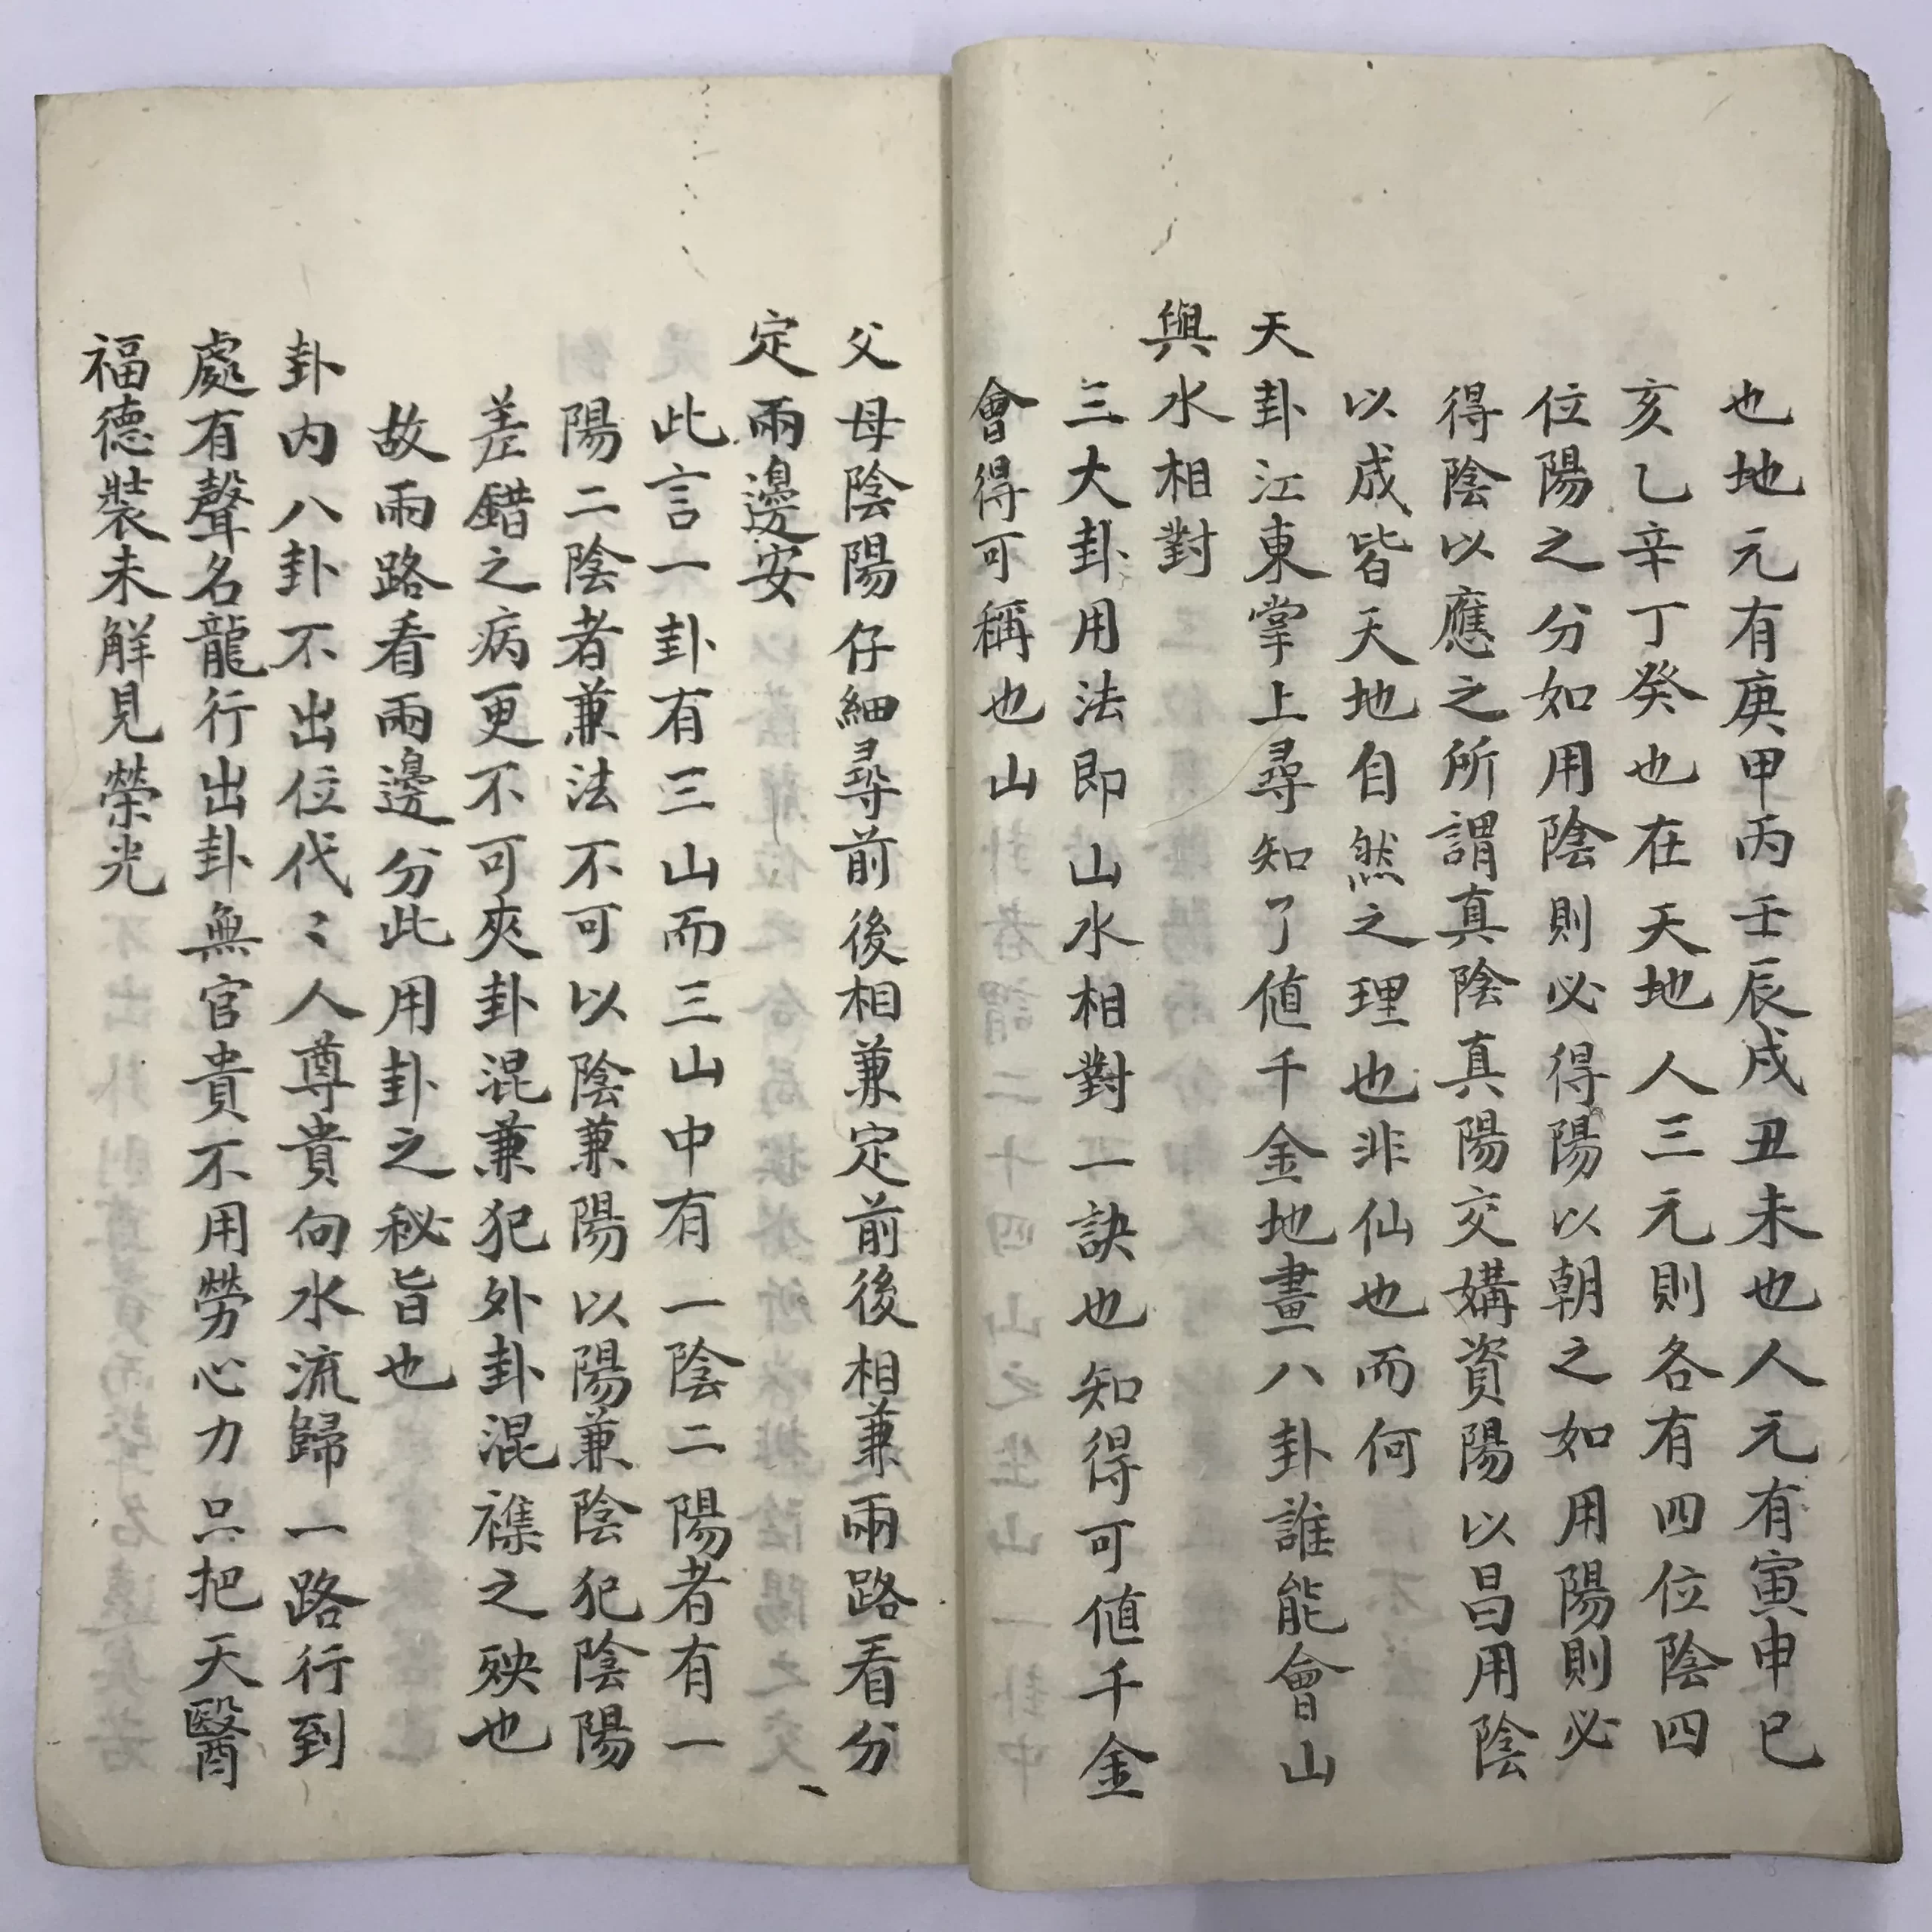 也地元有庚甲丙壬辰戌丑未也人元有寅申巳
亥乙辛丁癸也在天地人三元則各有四位陰四
位陽之分如用陰則必得陽以朝之如用陽則必
得陰以應之所謂真陰真陽交媾資陽以昌用陰
以成皆天地自然之理也非仙也而何
天卦江東掌上尋知了値千金地畫八卦誰能會山
與水相對
三大卦用法即山水相對一訣也知得可値千金
會得可稱也山
父母陰陽仔細尋前後相兼定前後相兼兩路看分
定兩邊安
此言一卦有三山而三山中有一陰二陽者有一
陽二陰者兼法不可以陰兼陽以陽兼陰犯陰陽
差錯之病更不可夾卦混兼犯外卦混襍之殃也
故兩路看兩邊分此用卦之秘旨也
卦内八卦不出位代〻人尊貴向水流歸一路行到
處有聲名龍行出卦無官貴不用勞心力只把天醫
福德裝未解見榮光